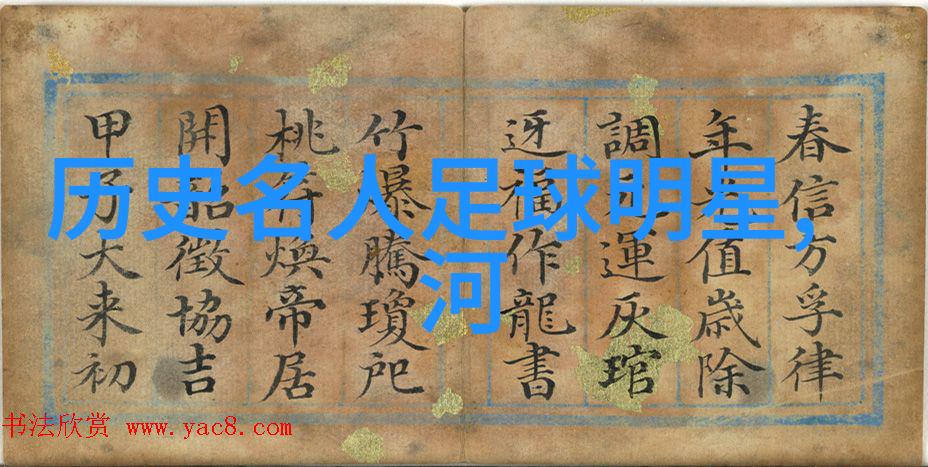 历史名人足球明星,
河
春信方孚律
年值歲除
調運灰琯
迓福作龍書
竹爆騰瓊
桃符煥帝居
開韶徵協吉
甲子大来初
书法欣赏 www.yac8.com